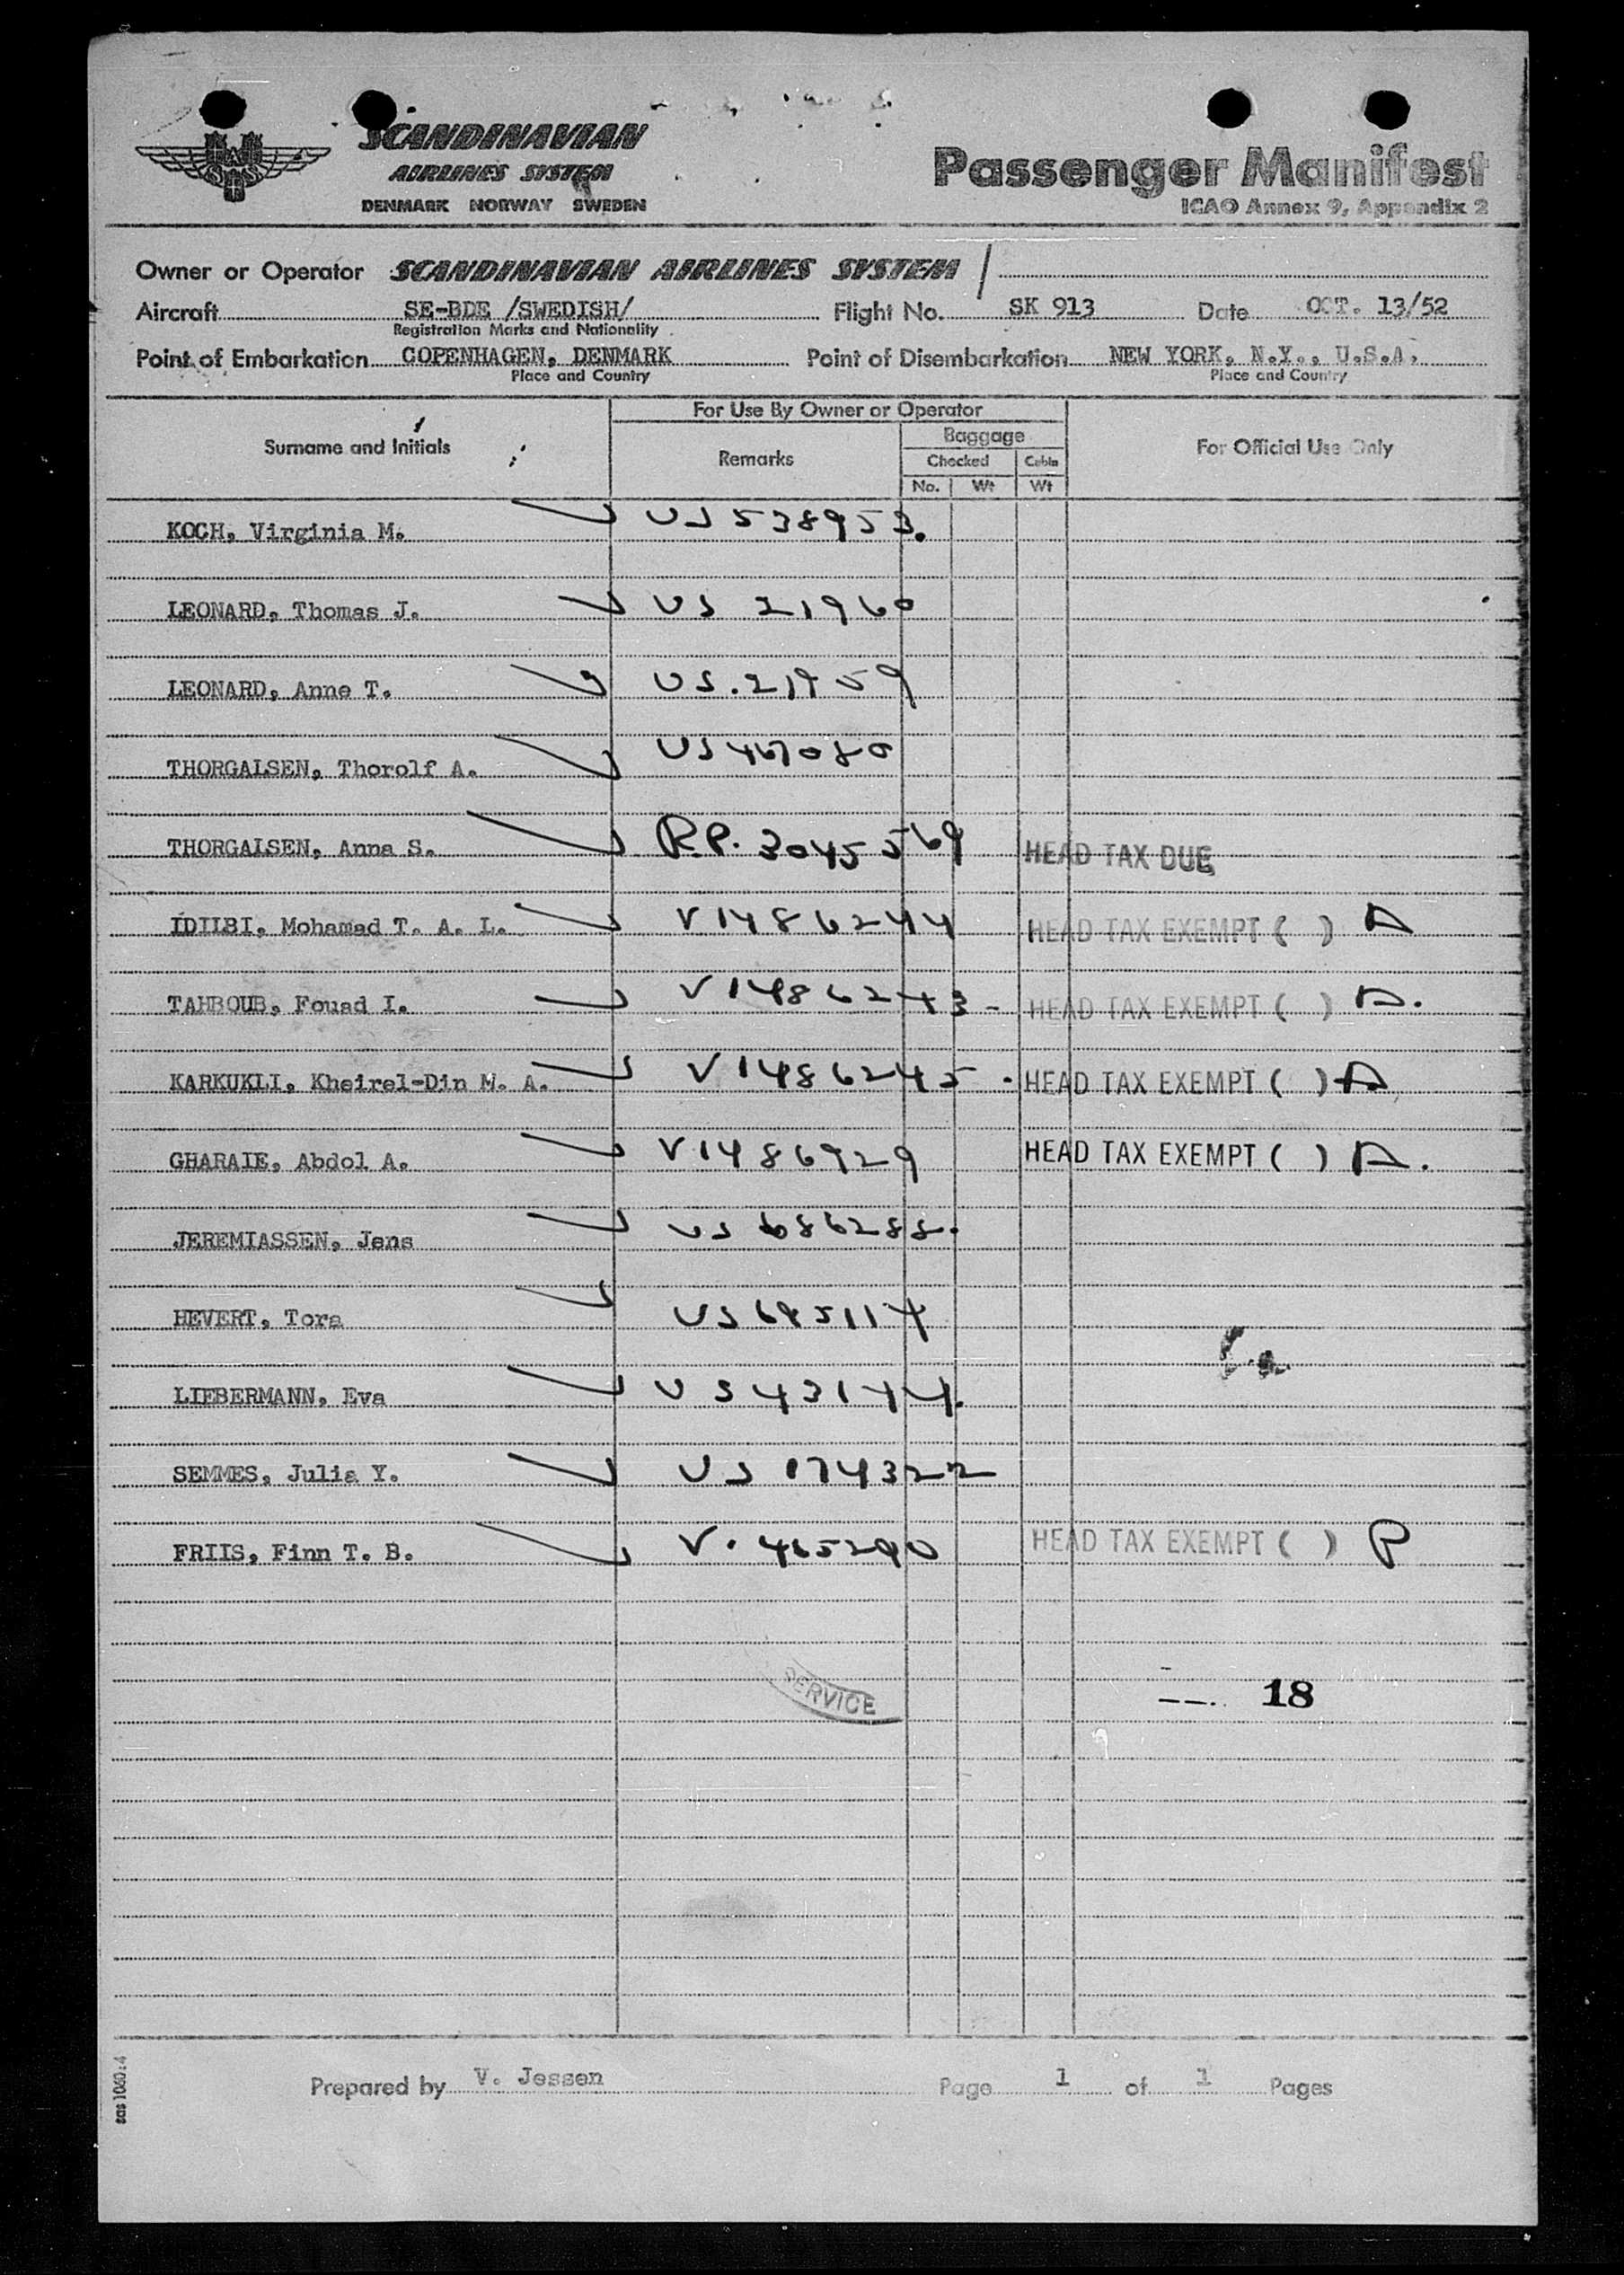 SCANDINAVIAN
AIRLINES SYSTEM
DENMARK NORWAY SWEDEN
Passenger Manifest
ICAO Annex 9, Appendix 2
Owner or Operator SCANDINAVIAN AIRLINES SYSTEM
Aircraft SE-BDE /SWEDISH/ Flight No. SK 913 Date OCT. 13/52
Registration Marks and Nationality
Point of Embarkation COPENHAGEN, DENMARK Point of Disembarkation NEW YORK, N.Y., U.S.A.
Place and Country Place and Country
For Use By Owner or Operator
Surname and Initials Remarks Baggage For Official Use Only
Checked Cabin
No. Wt Wt
KOCH, Virginia M. US 538953.
LEONARD, Thomas J. US 21960
LEONARD, Anne T. US. 21959
THORGALSEN, Thorolf A. US 467080
THORGALSEN, Anna S. R.P. 3045569 HEAD TAX DUE
IDILBI, Mohamad T. A. L. V1486244 HEAD TAX EXEMPT ( ) A
TAHBOUB, Fouad I. V1486243 - HEAD TAX EXEMPT ( ) A.
KARKUKLI, Kheirel-Din M. A. V1486245 . HEAD TAX EXEMPT ( ) A
GHARAIE, Abdol A. V1486929 HEAD TAX EXEMPT ( ) A.
JEREMIASSEN, Jens US 686288.
HEVERT, Tora US 695114
LIEBERMANN, Eva US 43144.
SEMMES, Julia Y. US 174322
FRIIS, Finn T. B. V. 465290 HEAD TAX EXEMPT ( ) P
SERVICE
18
Prepared by V. Jessen Page 1 of 1 Pages
sas 1060:4